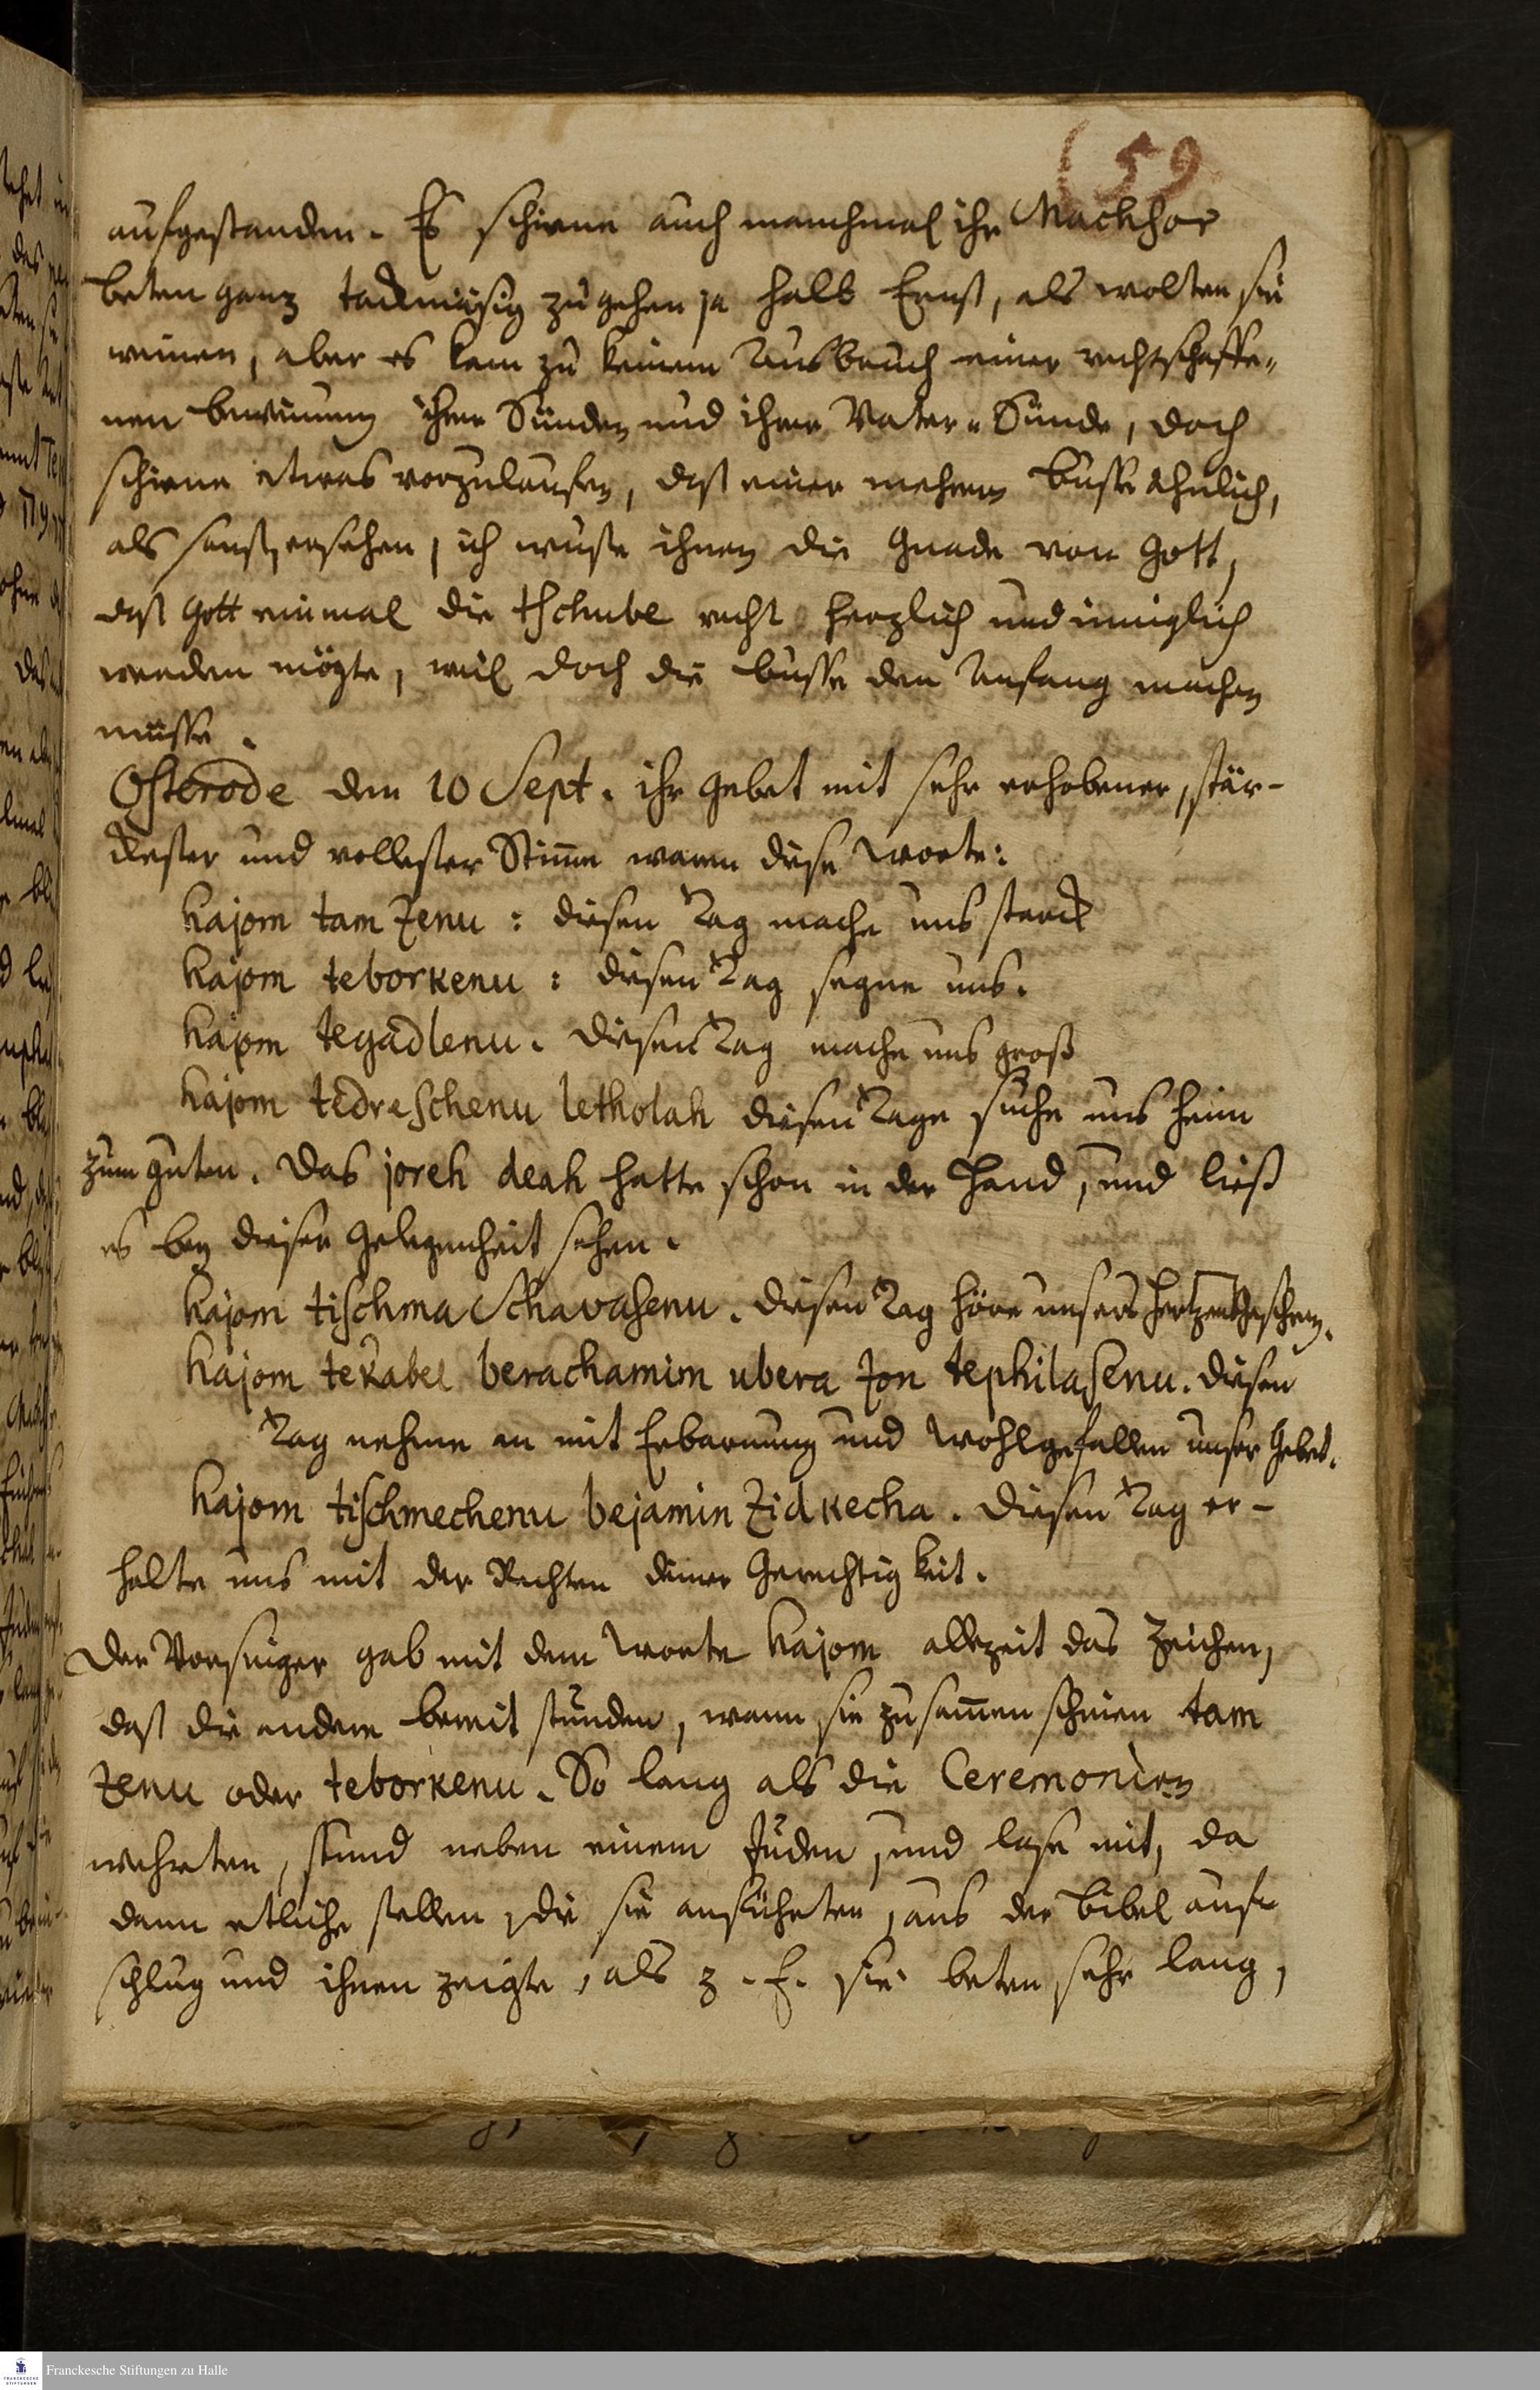 (59
aufgestanden. Es schiene auch manchmal ihr Mackhor
beten ganz tackmäsig zu gehen ja halb Ernst, als wolten sie
weinen, aber es kam zu keinem Ausbruch einer rechtschaffe-
nen beweinung ihrer Sünden und ihrer Väter-Sünde, doch
schiene etwas vorzulauffen, daß einer mehrern busse ähnlich,
als sonst, ersehen, ich wuste ihnen die Gnade von Gott,
daß Gott einmal die tschube recht herzlich und inniglich
werden mögte, weil doch die busse den Anfang machen
müsse.
Osterode den 10 Sept. ihr gebet mit sehr erhobener, stär-
ckester und vollester Stimme waren diese Worte:
hajom tamzenu: diesen Tag mache uns starck
hajom teborkenu: diesen Tag segne uns.
hajom tegadlenu. diesen Tag mache uns groß
hajom tedreschenu letholah diesen Tage suche uns heim
zum guten. Das joreh deah hatte schon in der Hand, und ließ
es bey dieser Gelegenheit sehen.
hajom tischma schavasenu. diesen Tag höre unsers Hertzens
hajom tekabel berachamim ubera zon tephilasenu. diesen
Tag nehme an mit Erbarmung und Wohlgefallen unser Gebet.
hajom tischmechenu bejamin zidkecha. diesen Tag er-
halte uns mit der Rechten deiner Gerechtigkeit.
Der Vorsinger gab mit dem Worte hajom allezeit das Zeichen,
daß die andern bereit stünden, wann sie zusammen schrien tam
zenu oder teborkenu. So lang als die Ceremonien
wehrten, stund neben einem Juden, und lase mit, da
dann etliche stellen, die sie anführten, aus der Bibel auf-
schlug und ihnen zeigte, als z. E. sie beten sehr lang,
Franckesche Stiftungen zu Halle